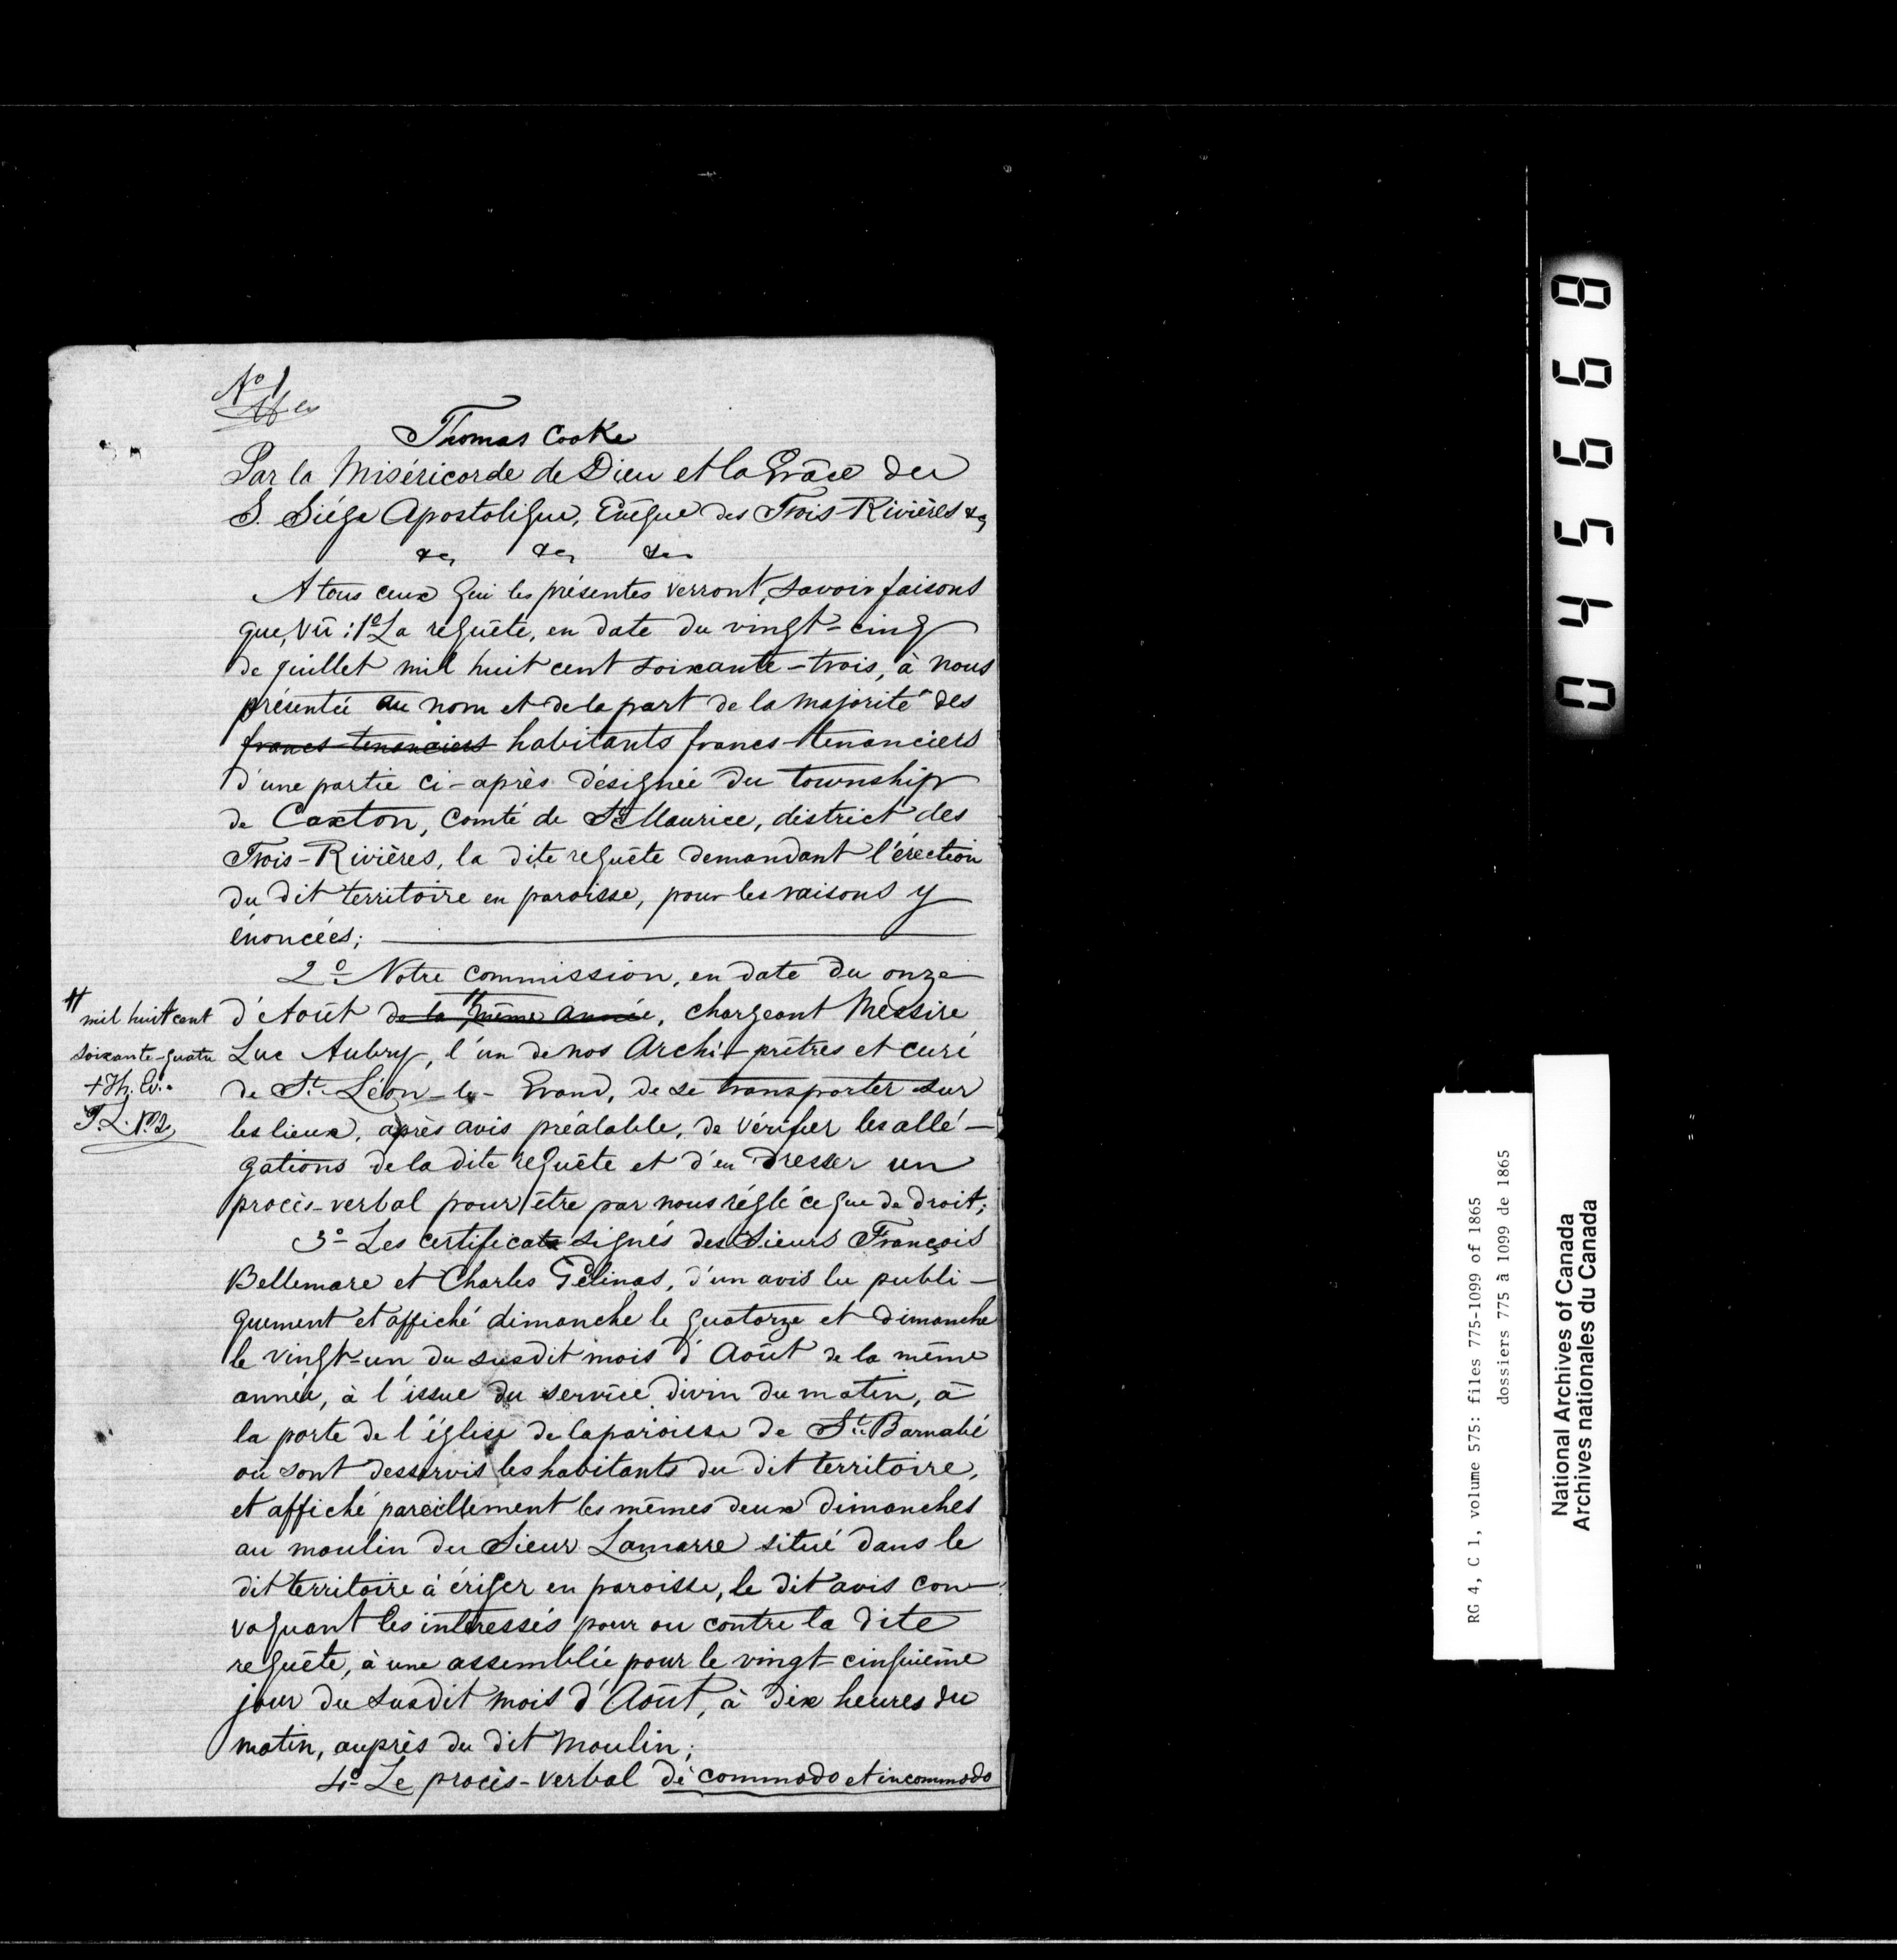 No 1
Thomas Cooke
Par la Miséricorde de Dieu et la Grâce du
S. Siége Apostolique, Evêque des Trois-Rivières &c,
&c, &c, &c
A tous ceux qui les présentes verront, savoir faisons
que, Vû : 1o La requête, en date du vingt-cinq
de juillet mil huit cent soixante-trois, à nous
présentée au nom et de la part de la majorité des
francs-tenanciers habitants francs-tenanciers
d'une partie ci-après désignée du township
de Caxton, Comté de St Maurice, district des
Trois-Rivières, la dite requête demandant l'érection
du dit territoire en paroisse, pour les raisons y
énoncées;
2o Notre commission, en date du onze
d'Août de la même année, chargeant Messire
Luc Aubry, l'un de nos Archi-prêtres et curé
de St. Léon-le-Grand, de se transporter sur
les lieux, après avis préalable, de vérifier les allé-
gations de la dite requête et d'en dresser un
procès-verbal pour être par nous réglé ce que de droit;
3o Les certificats signés des Sieurs François
Bellemare et Charles Gélinas, d'un avis lu publi-
quement et affiché dimanche le quatorze et dimanche
le vingt-un du susdit mois d'Août de la même
année, à l'issue du service divin du matin, à
la porte de l'église de la paroisse de St. Barnabé
où sont desservis les habitants du dit territoire,
et affiché pareillement les mêmes deux dimanches
au moulin du Sieur Lamarre situé dans le
dit territoire à ériger en paroisse, le dit avis con-
voquant les intéressés pour ou contre la dite
requête, à une assemblée pour le vingt-cinquième
jour du susdit mois d'Août, à dix heures du
matin, auprès du dit Moulin;
4o Le procès-verbal de commodo et incommodo
# mil huit cent
soixante-quatre
+ Th. Ev.
045668
RG 4, C 1, volume 575: files 775-1099 of 1865
dossiers 775 à 1099 de 1865
National Archives of Canada
Archives nationales du Canada